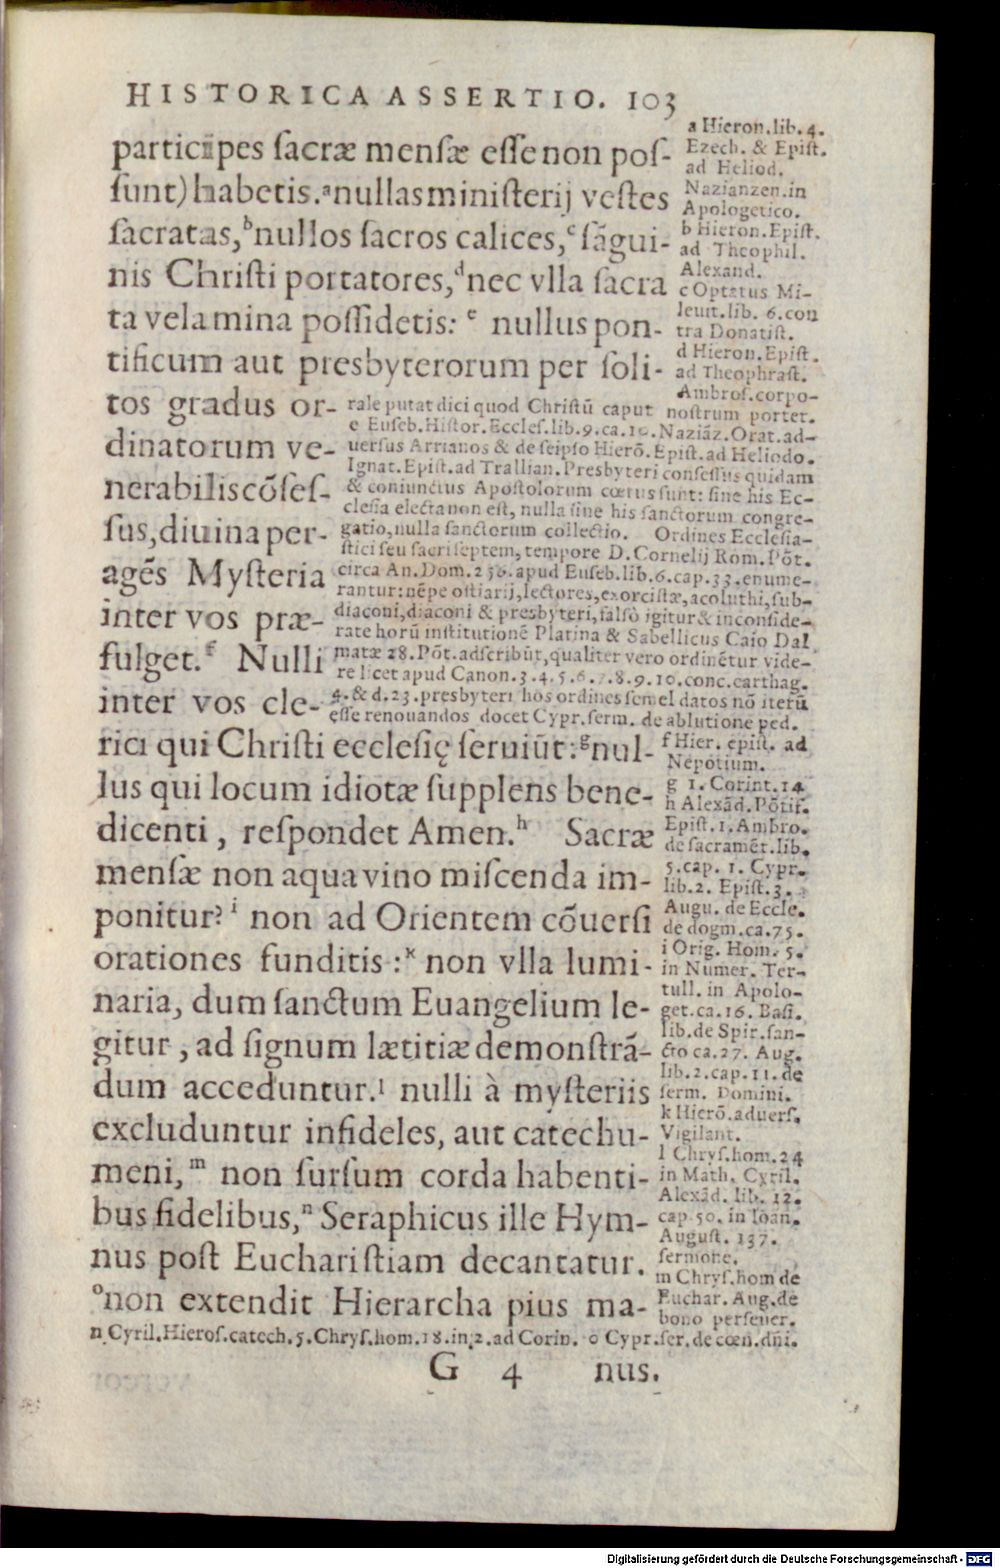 HISTORICA ASSERTIO. 103
participes ſacræ menſæ eſſe non poſ-
ſunt) habetis. ᵃnullas miniſterij veſtes
ſacratas, ᵇnullos ſacros calices, ᶜ ſãgui-
nis Chriſti portatores, ᵈnec vlla ſacra
ta velamina poſſidetis: ᵉ nullus pon-
tificum aut presbyterorum per ſoli-
tos gradus or-
dinatorum ve-
nerabilis cõſeſ-
ſus, diuina per-
agẽs Myſteria
inter vos præ-
fulget.ᶠ Nulli
inter vos cle-
rici qui Chriſti eccleſię ſeruiũt: ᵍnul-
lus qui locum idiotæ ſupplens bene-
dicenti, reſpondet Amen.ʰ Sacræ
menſæ non aqua vino miſcenda im-
ponitur?ⁱ non ad Orientem cõuerſi
orationes funditis:ᵏ non vlla lumi-
naria, dum ſanctum Euangelium le-
gitur, ad ſignum lætitiæ demonſtrã-
dum acceduntur.ˡ nulli à myſteriis
excluduntur infideles, aut catechu-
meni,ᵐ non ſurſum corda habenti-
bus fidelibus,ⁿ Seraphicus ille Hym-
nus poſt Euchariſtiam decantatur.
ᵒnon extendit Hierarcha pius ma-
a Hieron. lib. 4.
Ezech. & Epiſt.
ad Heliod.
Nazianzen. in
Apologetico.
b Hieron. Epiſt.
ad Theophil.
Alexand.
c Optatus Mi-
leuit. lib. 6. con
tra Donatiſt.
d Hieron. Epiſt.
ad Theophraſt.
Ambroſ. corpo-
rale putat dici quod Chriſtũ caput noſtrum portet.
e Euſeb. Hiſtor. Eccleſ. lib. 9. ca. 10. Naziãz. Orat. ad-
uerſus Arrianos & de ſeipſo Hierõ. Epiſt. ad Heliodo.
Ignat. Epiſt. ad Trallian. Presbyteri conſeſſus quidam
& coniunctus Apoſtolorum cœtus ſunt: ſine his Ec-
cleſia electa non eſt, nulla ſine his ſanctorum congre-
gatio, nulla ſanctorum collectio. Ordines Eccleſia-
ſtici ſeu ſacri ſeptem, tempore D. Cornelij Rom. Põt.
circa An. Dom. 256. apud Euſeb. lib. 6. cap. 33. enume-
rantur: nẽpe oſtiarij, lectores, exorciſtæ, acoluthi, ſub-
diaconi, diaconi & presbyteri, falſò igitur & inconſide-
rate horũ inſtitutionẽ Platina & Sabellicus Caio Dal
matæ 28. Põt. adſcribũt, qualiter vero ordinẽtur vide-
re licet apud Canon. 3. 4. 5. 6. 7. 8. 9. 10. conc. carthag.
4. & d. 23. presbyteri hos ordines ſemel datos nõ iterũ
eſſe renouandos docet Cypr. ſerm. de ablutione ped.
f Hier. epiſt. ad
Nepotium.
g 1. Corint. 14
h Alexãd. Põtif.
Epiſt. 1. Ambro.
de ſacramẽt. lib.
5. cap. 1. Cypr.
lib. 2. Epiſt. 3.
Augu. de Eccle.
de dogm. ca. 75.
i Orig. Hom. 5.
in Numer. Ter-
tull. in Apolo-
get. ca. 16. Baſi.
lib. de Spir. ſan-
cto ca. 27. Aug.
lib. 2. cap. 11. de
ſerm. Domini.
k Hierõ. aduerſ.
Vigilant.
l Chryſ. hom. 24
in Math. Cyril.
Alexãd. lib. 12.
cap. 50. in Ioan.
Auguſt. 137.
ſermone.
m Chryſ. hom de
Euchar. Aug. de
bono perſeuer.
n Cyril. Hieroſ. catech. 5. Chryſ. hom. 18. in 2. ad Corin. o Cypr. ſer. de cœn. dñi.
G 4 nus.
Digitalisierung gefördert durch die Deutsche Forschungsgemeinschaft - DFG